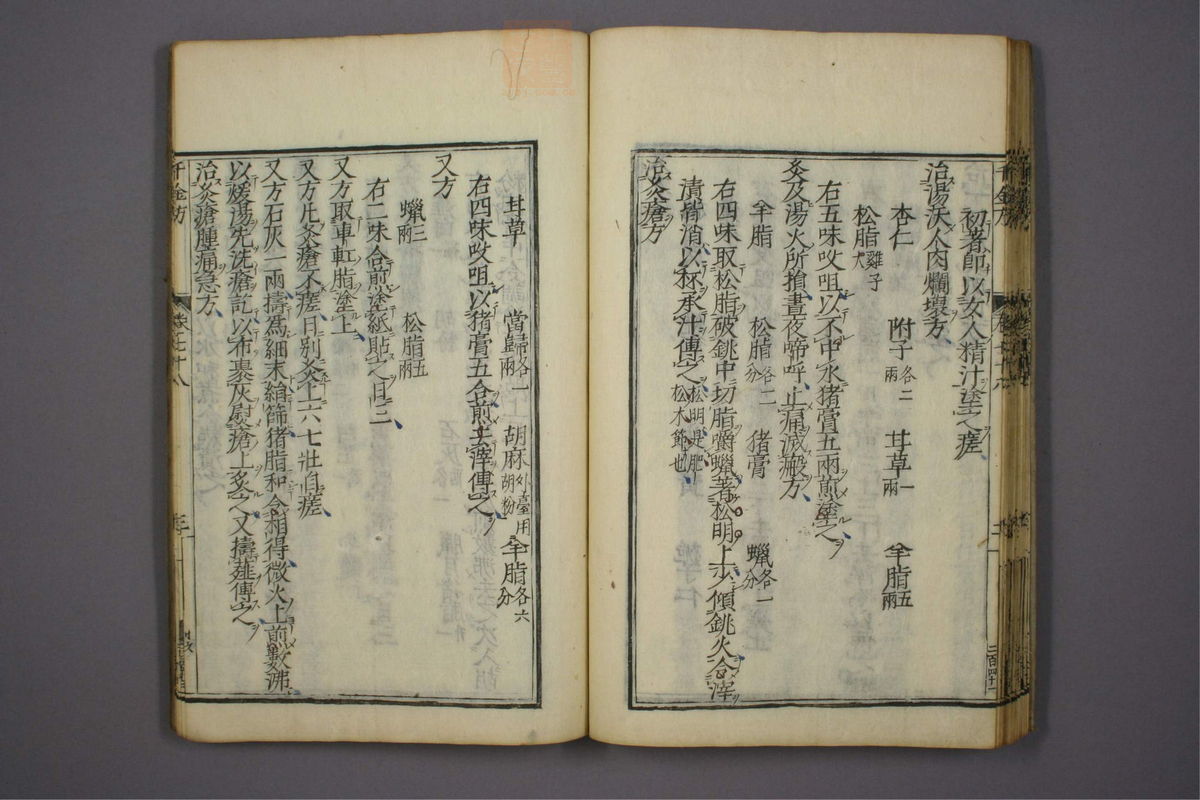 初著即以女人精汁塗之瘥
治湯沃人肉爛壞方
杏仁 附子各二兩 甘草一兩 羊脂五兩
松脂雞子大
右五味㕮咀以不中水猪膏五兩煎塗之
灸及湯火所損晝夜啼呼止痛滅瘢方
羊脂 松脂各二分 猪膏 蠟各一分
右四味取松脂破銚中切脂嚼蠟著松明上少傾銚火令滓
清皆消以杯承汁傅之松明是肥松木節也
治灸瘡方
甘草 當歸各一兩 胡麻外臺用胡粉 羊脂各六分
右四味㕮咀以猪膏五合煎去滓傅之
又方
蠟三兩 松脂五兩
右二味合煎塗紙貼之日三
又方取車釭脂塗上
又方凡灸瘡不瘥日別灸上六七壯自瘥
又方石灰一兩擣為細末絹篩猪脂和令相得微火上煎數沸
以煖湯先洗瘡訖以布裹灰熨瘡上灸之又擣薤傅之
治灸瘡腫痛急方
千金方